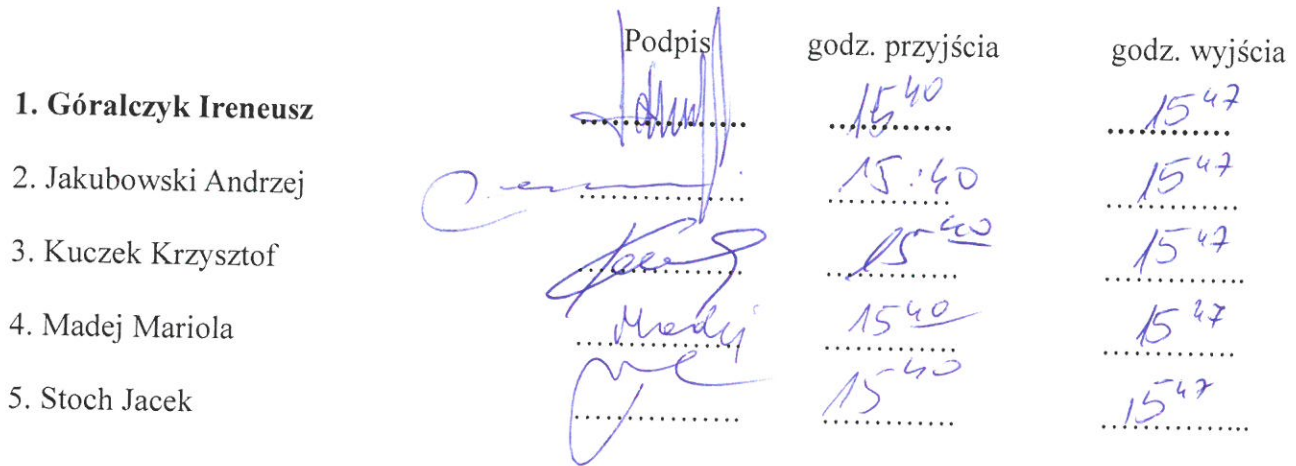 Podpis godz. przyjścia godz. wyjścia
1. Góralczyk Ireneusz ............ 15 40 15 47
2. Jakubowski Andrzej ............ 15:40 15 47
3. Kuczek Krzysztof ............ 15 40 15 47
4. Madej Mariola Madej 15 40 15 47
5. Stoch Jacek ............ 15 40 15 47